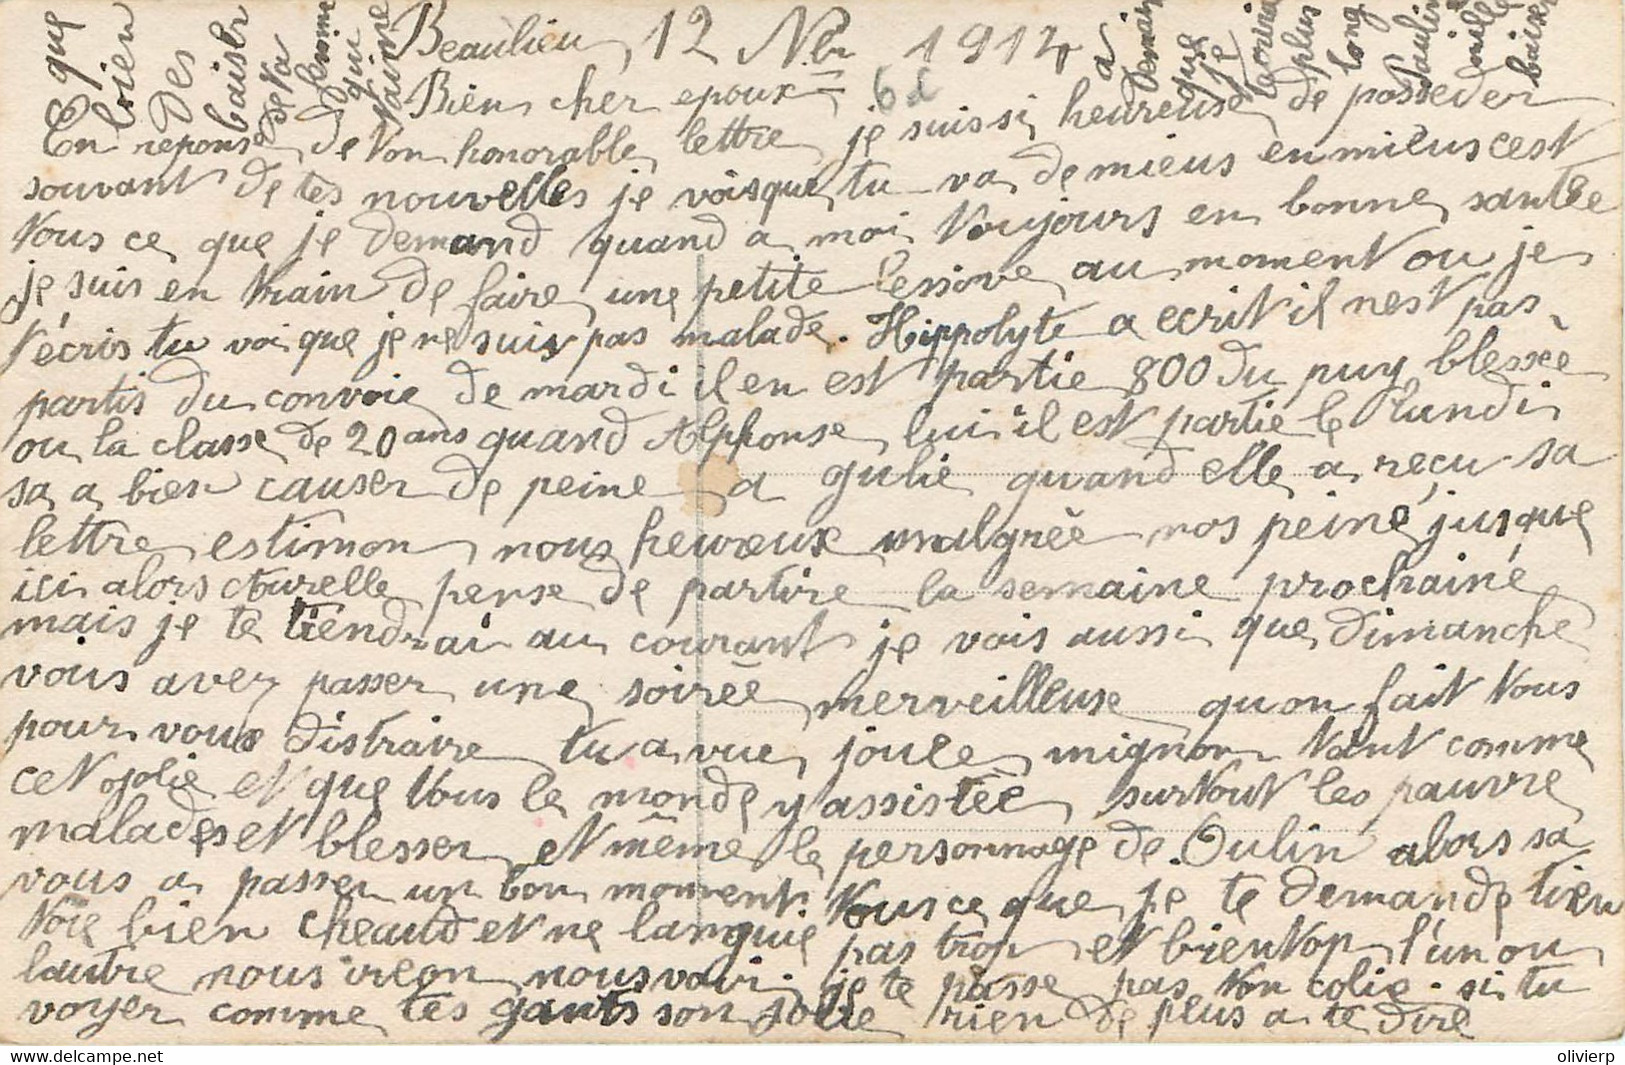 Beaulieu, 12 Nbr 1914
Bien cher epoux
En reponse, de ton honorable, lettre, je suis si, heureuse, de posseder
souvant de tes nouvelles je vois que, tu va, de mieus en mieus cest
tous ce, que je demand quand a, moi, toujours en bonne, santée
je suis en train de faire, une petite lessive, au moment ou je
t'écris tu voi que je ne suis pas malade. Hippolyte a ecrit il nest pas
partis du convoie, de mardi il en est partie 800 du puy blessée
ou la classe de 20 ans quand Alphonse, lui il est partie le lundi
sa a bien causer de peine a Julie quand elle a reçu sa
lettre, estimon, nous heureux malgrée nos peine, jusque
ici alors pense de partire la semaine prochaine
mais je te tiendrai au courant je vois aussi que, dimanche
vous aver passer une, soirée merveilleuse quon fait tous
pour vous distraire tu a vue, jouée, mignon tant comme
cet jolie et que tous le monde y assistée, surtout les pauvre
malades et blesser, et même, le personnage de Oulin alors sa
vous a, passer un bon moment tous ce que je te demande tien
toie bien cheaud et ne languie pas trop et bientop l'un ou
lautre nous iron nous voir. je te passe pas ton colie. si tu
voyer comme, tes gants son jolie rien de plus a te dire
que
bien
des
baisér
de ta
femme
qui
t'aime
a
demain
que
je
t'ecrirai
plus
long
Pauline
mille
baiser
6d
olivierp